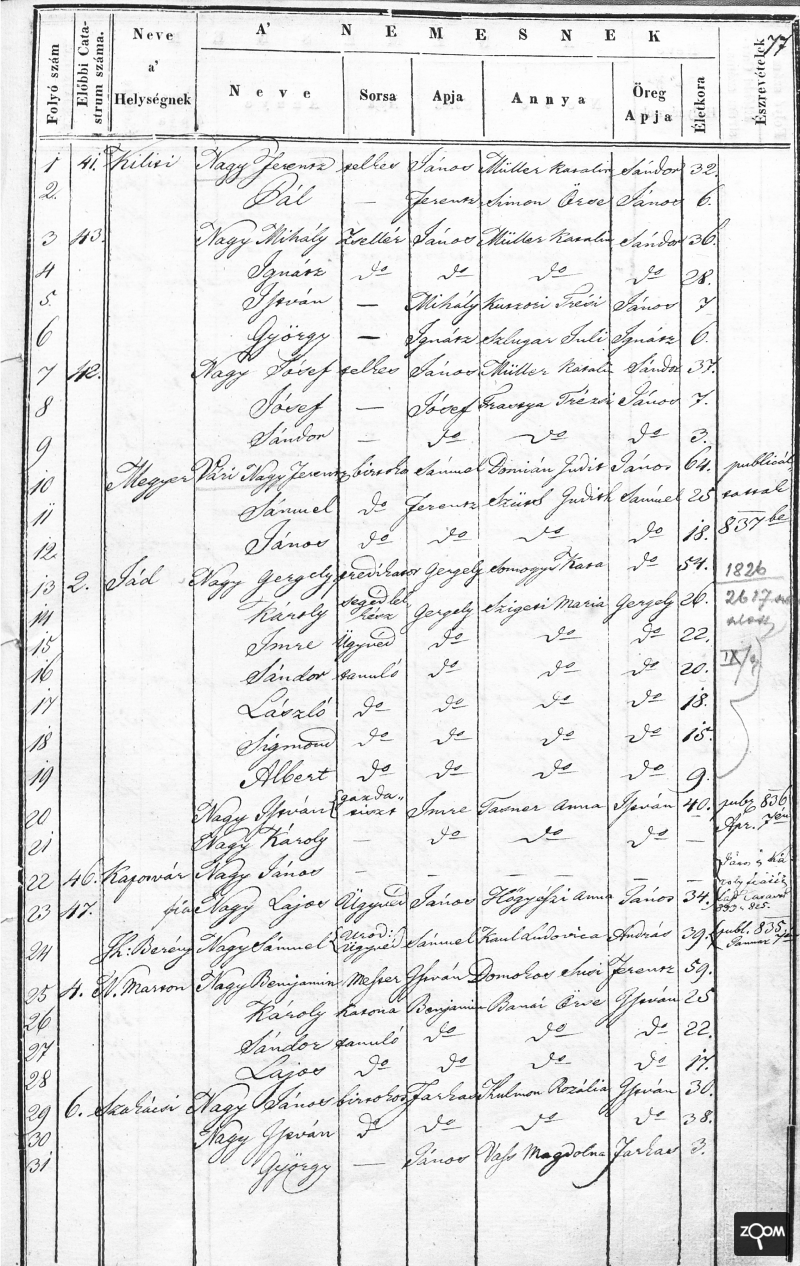 77
A' NEMESNEK
Folyó szám
Elöbbi Catastrum száma.
Neve a' Helységnek
Neve
Sorsa
Apja
Annya
Öreg Apja
Életkora
Észrevételek
1 41. Kilisi Nagy Ferentz telkes János Müller Katalin Sándor 32.
2. Pál — Ferentz Simon Örse János 6.
3 43. Nagy Mihály Zsellér János Müller Katalin Sándor 36.
4 Ignátz do do do do 28.
5 István — Mihály Trési János 7
6 György — Ignátz Szlugar Juli Ignátz 6.
7 42. Nagy Jósef telkes János Müller Katalin Sándor 37.
8 Jósef — Jósef Trézsi János 7.
9 Sándor — do do do 3.
10 Megyer Vári Nagy Ferentz birtokos Sámuel Domián Judit János 64. publicál
11 Sámuel do Ferentz Szüts Judith Samuel 25 tattak
12 János do do do do 18. 837be
13 2. Jád Nagy Gergely Gergely Somogyi Kata do 54. 1826
14 Károly Gergely Szigeti Maria Gergely 26. 2617
15 Imre Ügyvéd do do do 22.
16 Sándor tanuló do do do 20. IX/9
17 László do do do do 18.
18 Sigmond do do do do 15.
19 Albert do do do do 9.
20 Nagy István gazdatiszt Imre Tasner Anna István 40. pub. 836 Apr. 7en
21 Nagy Károly — do do do —
22 46. Kaposvár Nagy János — — — — —
23 47. fia Nagy Lajos Ügyvéd János Hőgyészi Anna János 34.
24 Jh: Bereny Nagy Sámuel Urod: Ügyvéd Sámuel Kaul Ludovica András 39. publ. 835.
25 4. N. Marton Nagy Benjamin Mester István Domokos Susi Ferentz 59.
26 Károly katona Benjamin Banai Örse István 25
27 Sándor tanuló do do do 22.
28 Lajos do do do do 17.
29 6. Szakácsi Nagy János birtokos Farkas Kulmon Rozália István 30.
30 Nagy István do do do do 38.
31 György — János Vass Magdolna Farkas 3.
ZOOM